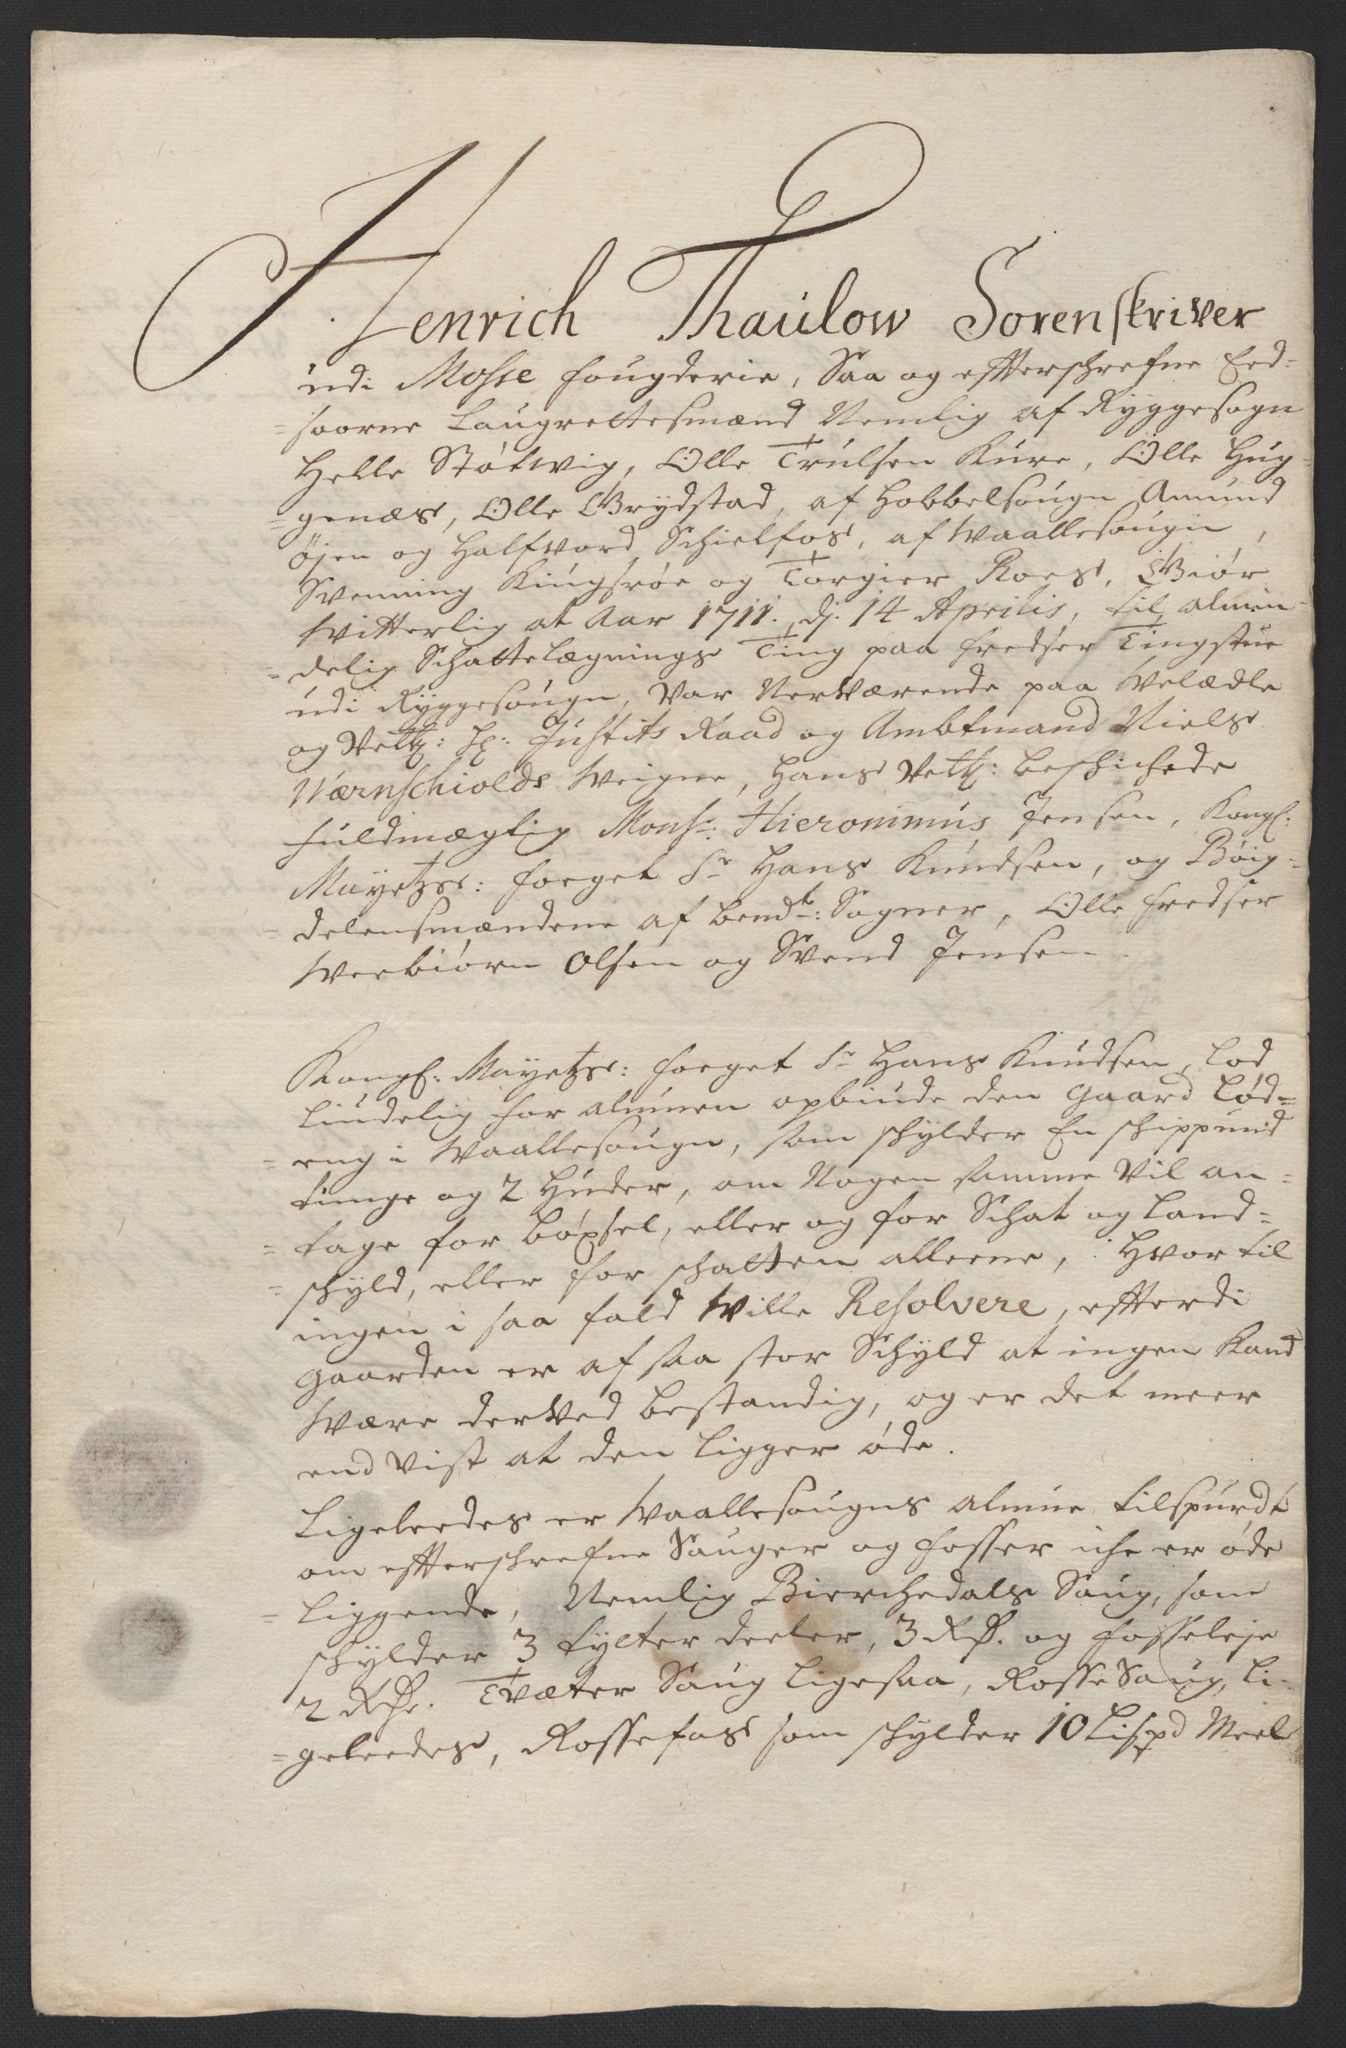 Henrich Thaulow Sorenskriver
udi Mosse fougderie, Saa og effterschrefne Eed-
=soorne Laugrettesmænd Nemlig af Ryggesogn
Helle Støtwig, Olle Trulsen Kure, Olle Hug-
=genæs, Olle Brydstad, af Hobbelsougn Amund
Øjen og Halfvord Schielfos, af Waallesougn,
Svenning Kingsrøe og Torgier Roes, Giør
Witterlig at Aar 1711. dj. 14 Aprilis, til almin-
=delig Schattelægnings Ting paa fredser Tingstue
udi Ryggesougn, var Nerværende paa Velædle
og Vellb: Hr: Justits Raad og Ambtmand Niels
Wærnschiolds Weigne, Hans Vellb: beschichede
fuldmægtig Monsr: Hieronimus Jensen, Kongl:
Mayetzs: foeget Sr Hans Knudsen, og Bøig-
=delensmændene af bemdte: Sogner, Olle fredser
Werbiørn Olsen og Svend Jensen
Kongl: Mayetzs: foeget Sr Hans Knudsen, lod
liudelig for almuen opbiude den Gaard Lød=
=eng i Waallesougn, som schylder En schippund
tunge og 2 Huder, om Nogen samme vil an=
=tage for bøxsel, eller og for Schat og Land=
=schyld, eller for schatten alleene, Hvor til
ingen i saa fald Wille Resolvere, efterdi
gaarden er af saa stor Schyld at ingen Kand
Være derved bestandig, og er det meer
end vist at den ligger øde.
Ligeleedes er Waallesougns almue tilspurdt
om effterschrefne Sauger og fosser iche er øde
=liggende, Nemlig Bierchedals Saug, som
schylder 3 tylter deeler, 3 Rdr. og fosseleje
2 Rdr. Tvæter Saug ligesaa, Rosse Saug, li-
=geleedes, Rossefos som schylder 10 Lispd Meel